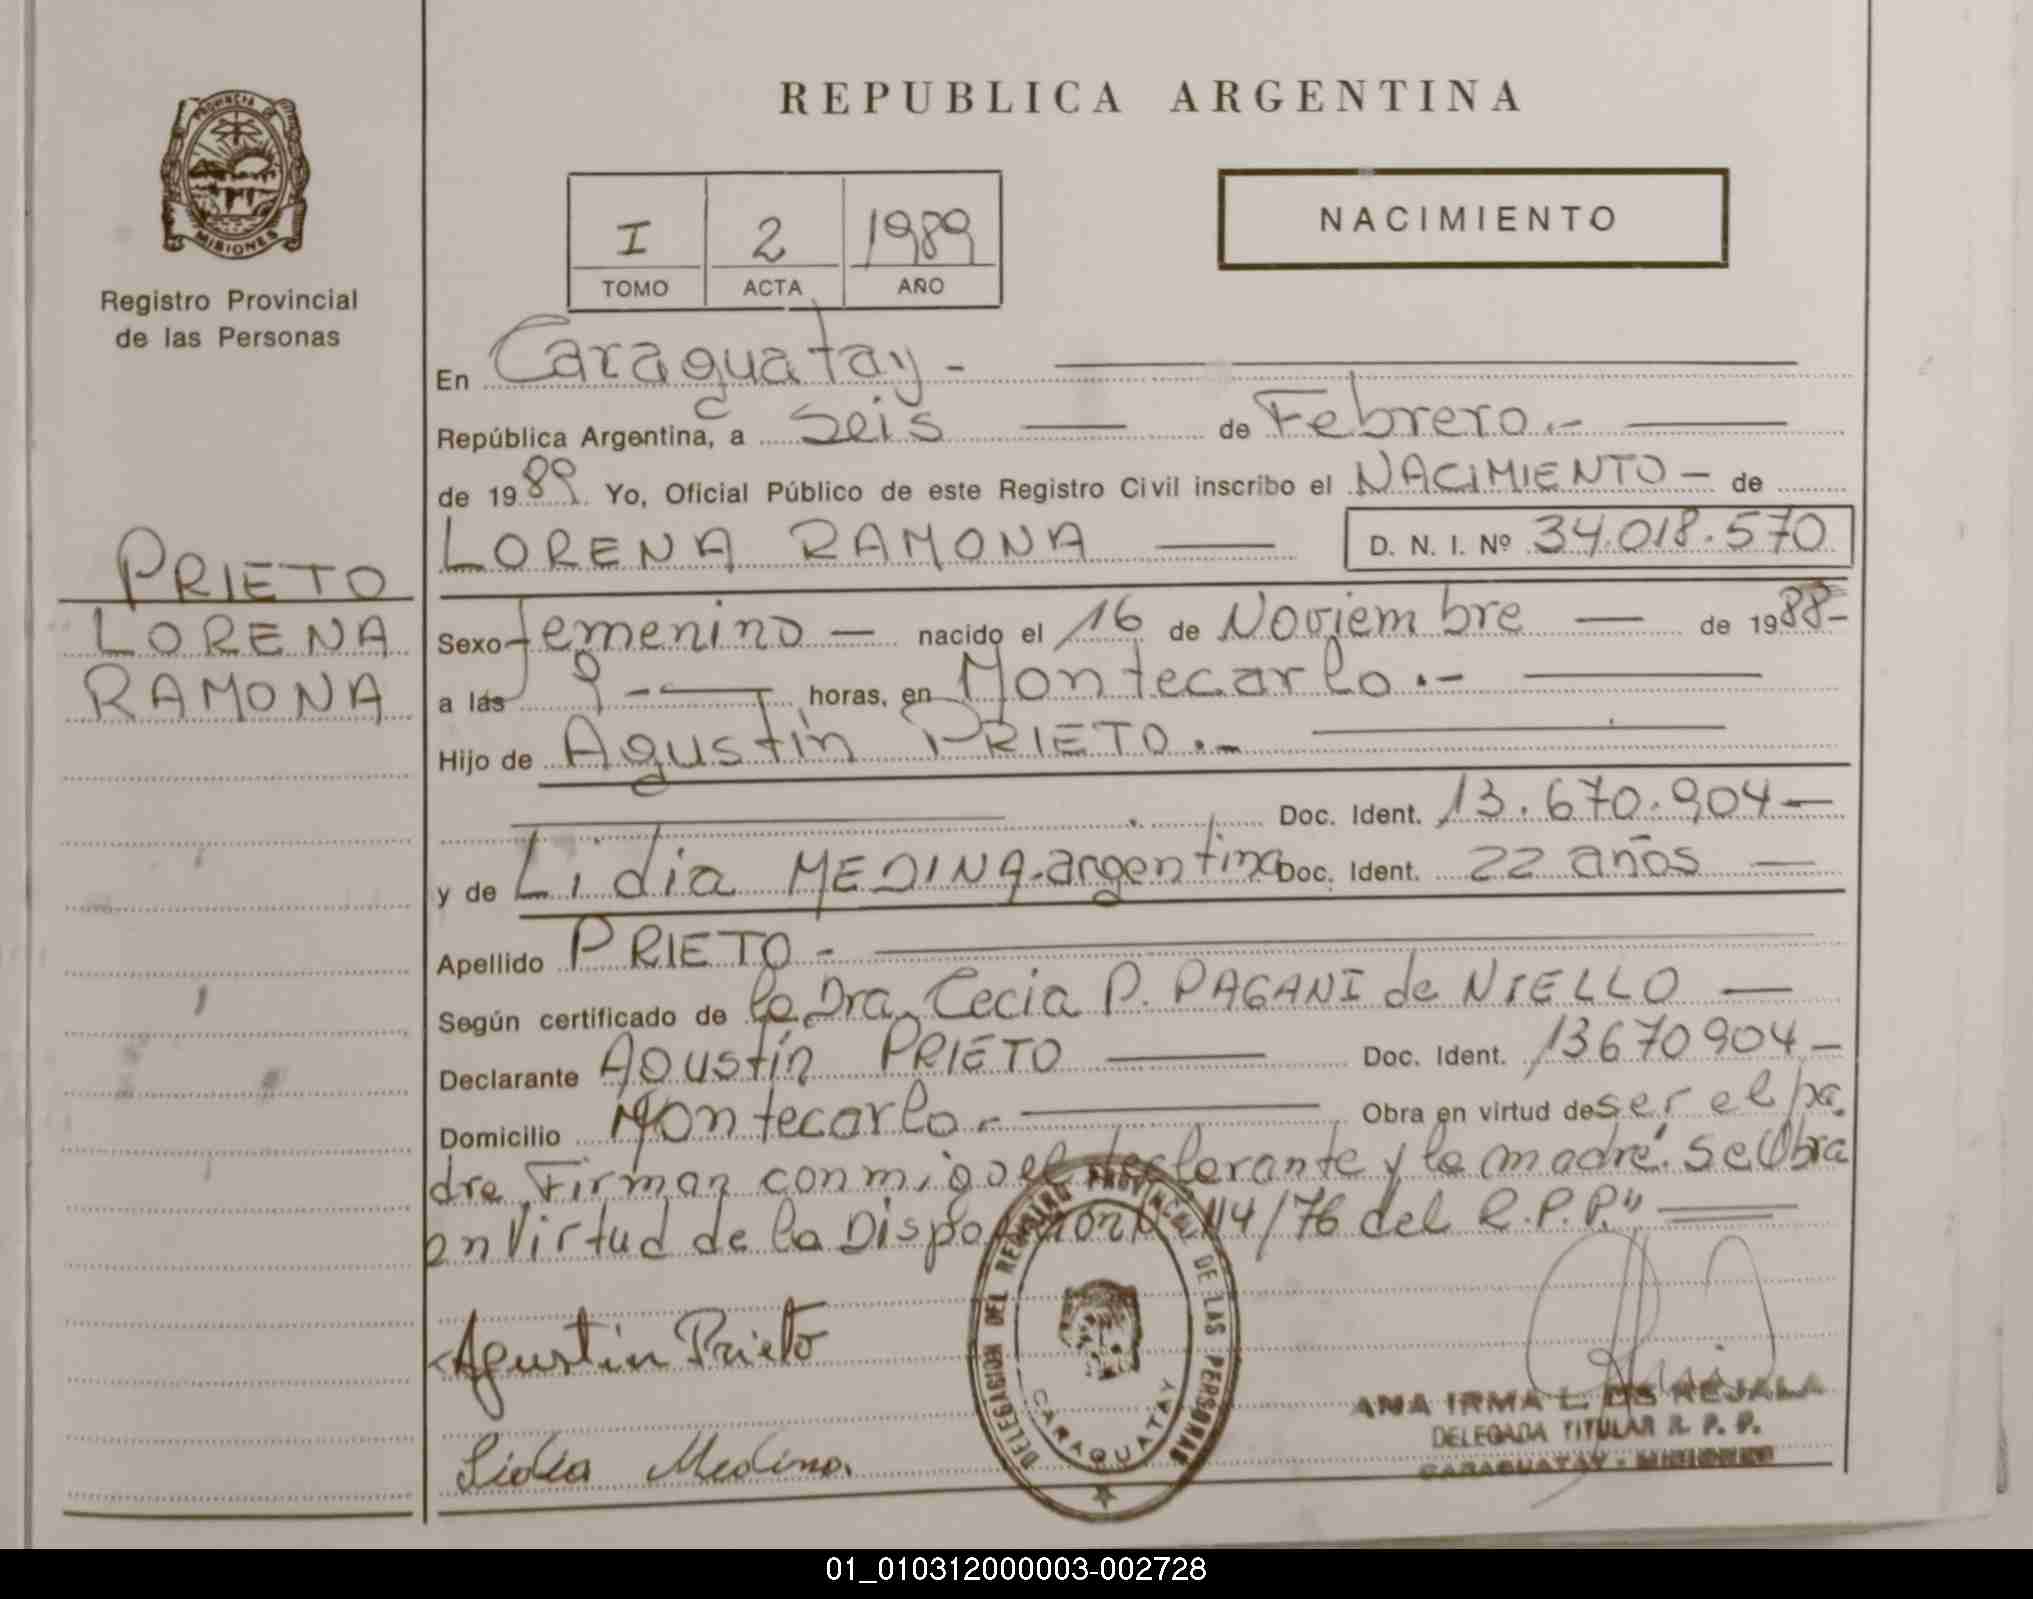 PROVINCIA DE
MISIONES
Registro Provincial
de las Personas
PRIETO
LORENA
RAMONA
REPUBLICA ARGENTINA
I 2 1989
TOMO ACTA AÑO
NACIMIENTO
En Caraguatay -
República Argentina, a seis de Febrero.-
de 1989 Yo, Oficial Público de este Registro Civil inscribo el NACIMIENTO - de
LORENA RAMONA D. N. I. Nº 34.018.570
Sexo femenino - nacido el 16 de Noviembre de 1988-
a las 9 - horas, en Montecarlo.-
Hijo de Agustín PRIETO.-
Doc. Ident. 13.670.904-
y de Lidia MEDINA-argentina Doc. Ident. 22 años
Apellido PRIETO -
Según certificado de la Dra. Cecia P. PAGANI de NIELLO
Declarante Agustín PRIETO Doc. Ident. 13670904-
Domicilio Montecarlo.- Obra en virtud de ser el pa
dre. Firman conmigo el declarante y la madre". Se Obra
en Virtud de la Disposición Nº 114/76 del R.P.P."
Agustin Prieto
Lidia Medina.
DELEGACION DEL REGISTRO PROVINCIAL DE LAS PERSONAS
CARAGUATAY
ANA IRMA L. DE REJALA
DELEGADA TITULAR R. P. P.
CARAGUATAY - MISIONES
01_010312000003-002728